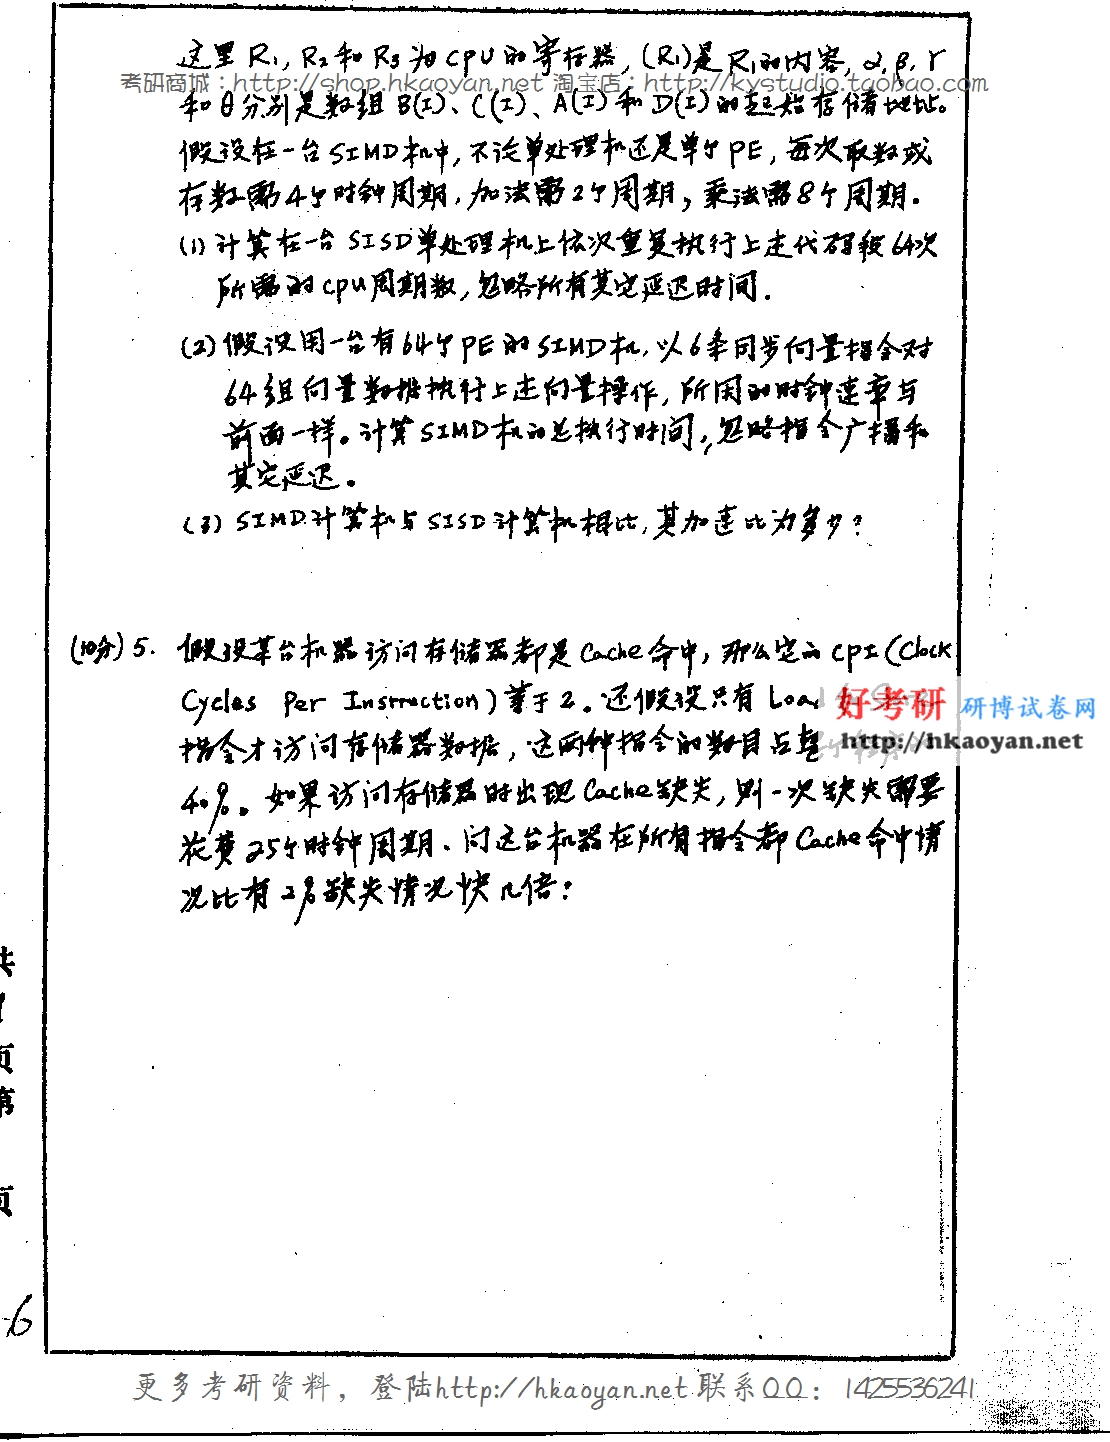 这里 R1, R2 和 R3 为 CPU 的寄存器, (R1)是 R1的内容, α, β, γ
考研商城：http://shop.hkaoyan.net 淘宝店：http://kystudio.taobao.com
和 θ 分别是数组 B(I)、C(I)、A(I) 和 D(I) 的起始存储地址。
假设在一台 SIMD 机中, 不论单处理机还是单个 PE, 每次取数或
存数需4个时钟周期, 加法需2个周期, 乘法需8个周期.
(1) 计算在一台 SISD 单处理机上依次重复执行上述代码段 64次
所需的 CPU 周期数, 忽略所有其它延迟时间.
(2) 假设用一台有64个 PE 的 SIMD 机, 以6条同步向量指令对
64组向量数据执行上述向量操作, 所用的时钟速率与
前面一样。计算 SIMD 机的总执行时间, 忽略指令广播和
其它延迟。
(3) SIMD 计算机与 SISD 计算机相比, 其加速比为多少?
(10分) 5. 假设某台机器访问存储器都是 Cache 命中, 那么它的 CPI (Clock
Cycles Per Instruction) 等于 2。还假设只有 Load
好考研 研博试卷网
指令才访问存储器数据, 这两种指令的数目占整
http://hkaoyan.net
40%。如果访问存储器时出现 Cache 缺失, 则一次缺失需要
花费 25个时钟周期. 问这台机器在所有指令都 Cache 命中情
况比有 2% 缺失情况快几倍?
共
页
第
页
-6
更多考研资料，登陆http://hkaoyan.net 联系QQ：1425536241